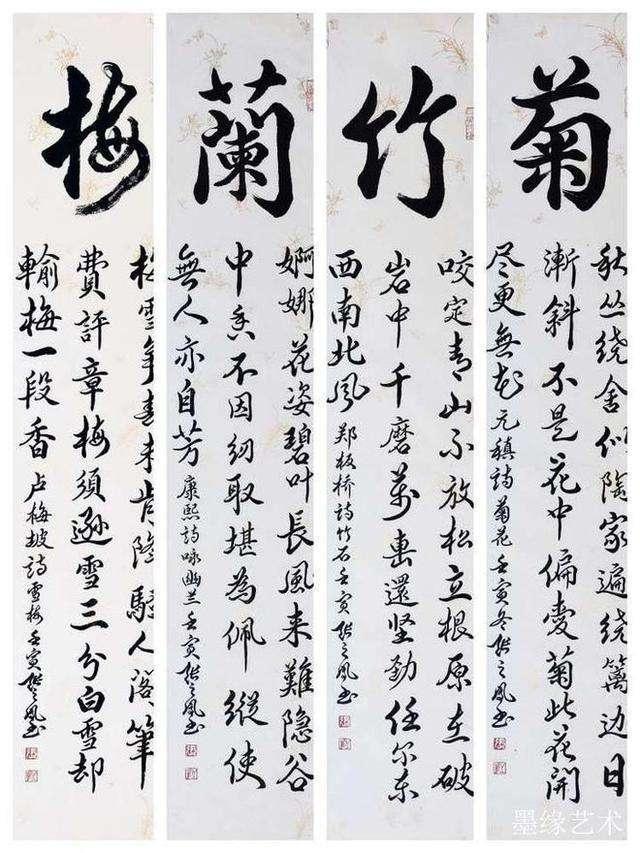 梅
梅雪争春未肯降騷人阁筆
費評章梅須遜雪三分白雪却
輸梅一段香 卢梅坡詩雪梅 壬寅 之凤书
蘭
婀娜花姿碧叶長風来難隐谷
中香不因纫取堪為佩縱使
無人亦自芳 康熙詩咏幽兰 壬寅 之凤书
竹
咬定青山不放松立根原在破
岩中千磨萬击還坚劲任尔东
西南北风 郑板桥詩竹石 壬寅 之凤书
菊
秋丛绕舍似陶家遍绕篱边日
漸斜不是花中偏愛菊此花開
尽更無花 元稹詩菊花 壬寅冬 之凤书
墨缘艺术